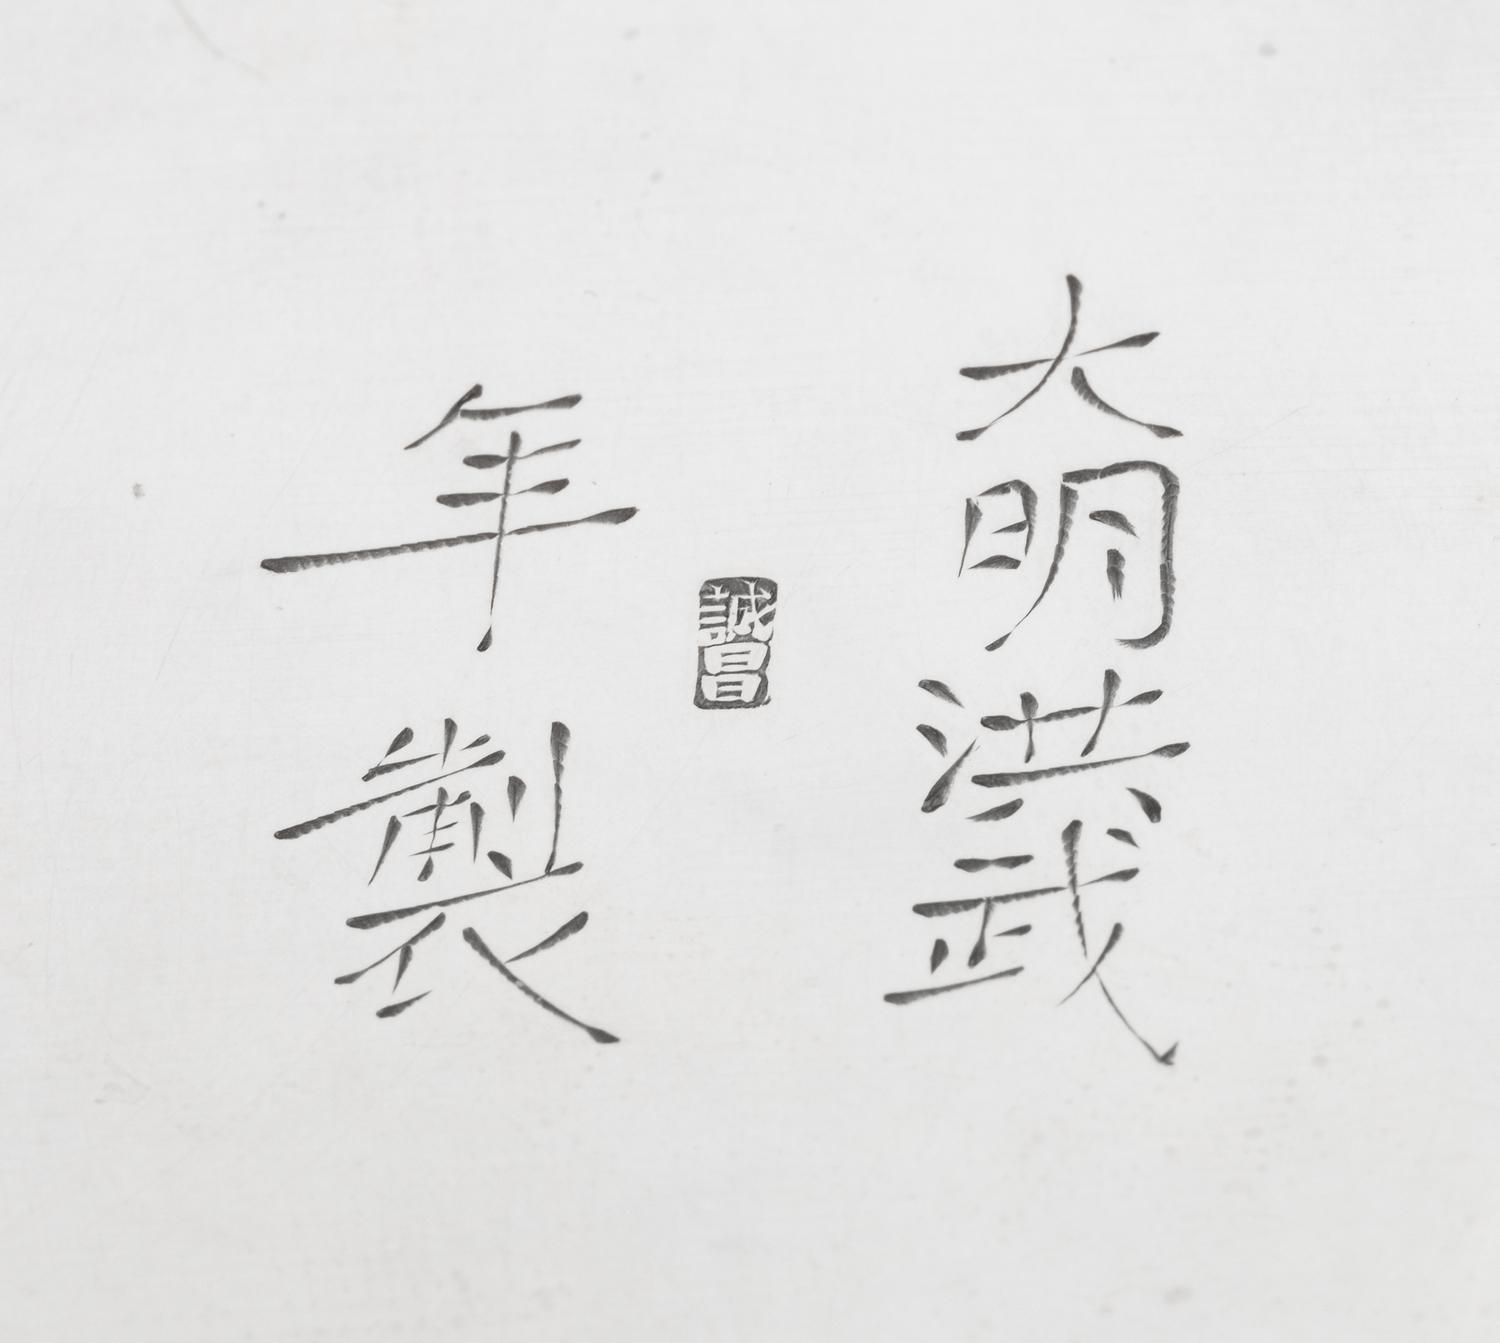 大明洪武
誠昌
年製